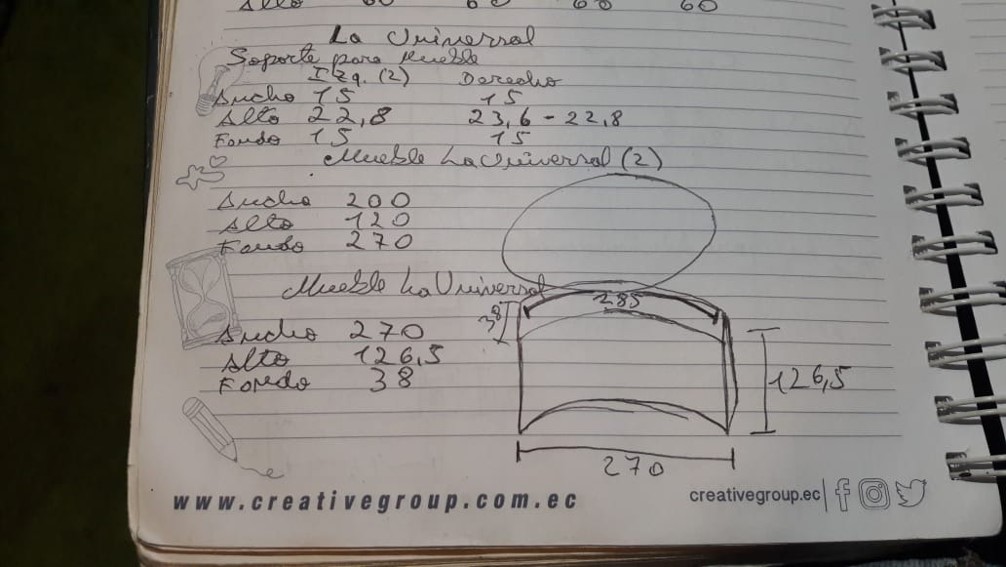 Alto 60 60 60 60
La Universal
Soporte para Mueble
Izq. (2) Derecho
Ancho 15 15
Alto 22,8 23,6 - 22,8
Fondo 15 15
Mueble La Universal (2)
Ancho 200
Alto 120
Fondo 270
Mueble La Universal
285
38
Ancho 270
Alto 126,5
Fondo 38
126,5
270
www.creativegroup.com.ec
creativegroup.ec